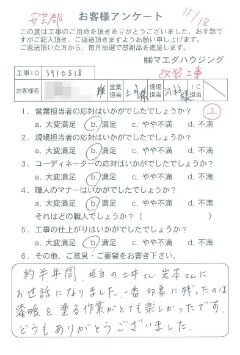 11/18
お客様アンケート
この度は工事のご用命を頂きありがとうございました。お手数で
すがご記入頂き、ご返送頂きますようお願い申し上げます。
ご返送頂いた方から、毎月抽選で感謝品を進呈します。
㈱マエダハウジング
工事ID 3910518 改装工事
お客様名 様 営業担当 現場担当
1. 営業担当者の応対はいかがでしたでしょうか？
a. 大変満足 b. 満足 c. やや不満 d. 不満
2. 現場担当者の応対はいかがでしたでしょうか？
a. 大変満足 b. 満足 c. やや不満 d. 不満
3. コーディネーターの応対はいかがでしたでしょうか？
a. 大変満足 b. 満足 c. やや不満 d. 不満
4. 職人のマナーはいかがでしたでしょうか？
a. 大変満足 b. 満足 c. やや不満 d. 不満
それはどの職人でしょうか？（ ）
5. 工事の仕上がりはいかがでしたでしょうか？
a. 大変満足 b. 満足 c. やや不満 d. 不満
6. その他、ご意見・ご要望をお聞かせ下さい。
約半年間、担当の さん、岩本さんに
お世話になりました。一番印象に残ったのは
漆喰を塗る作業がとても楽しかったです。
どうもありがとうございました。